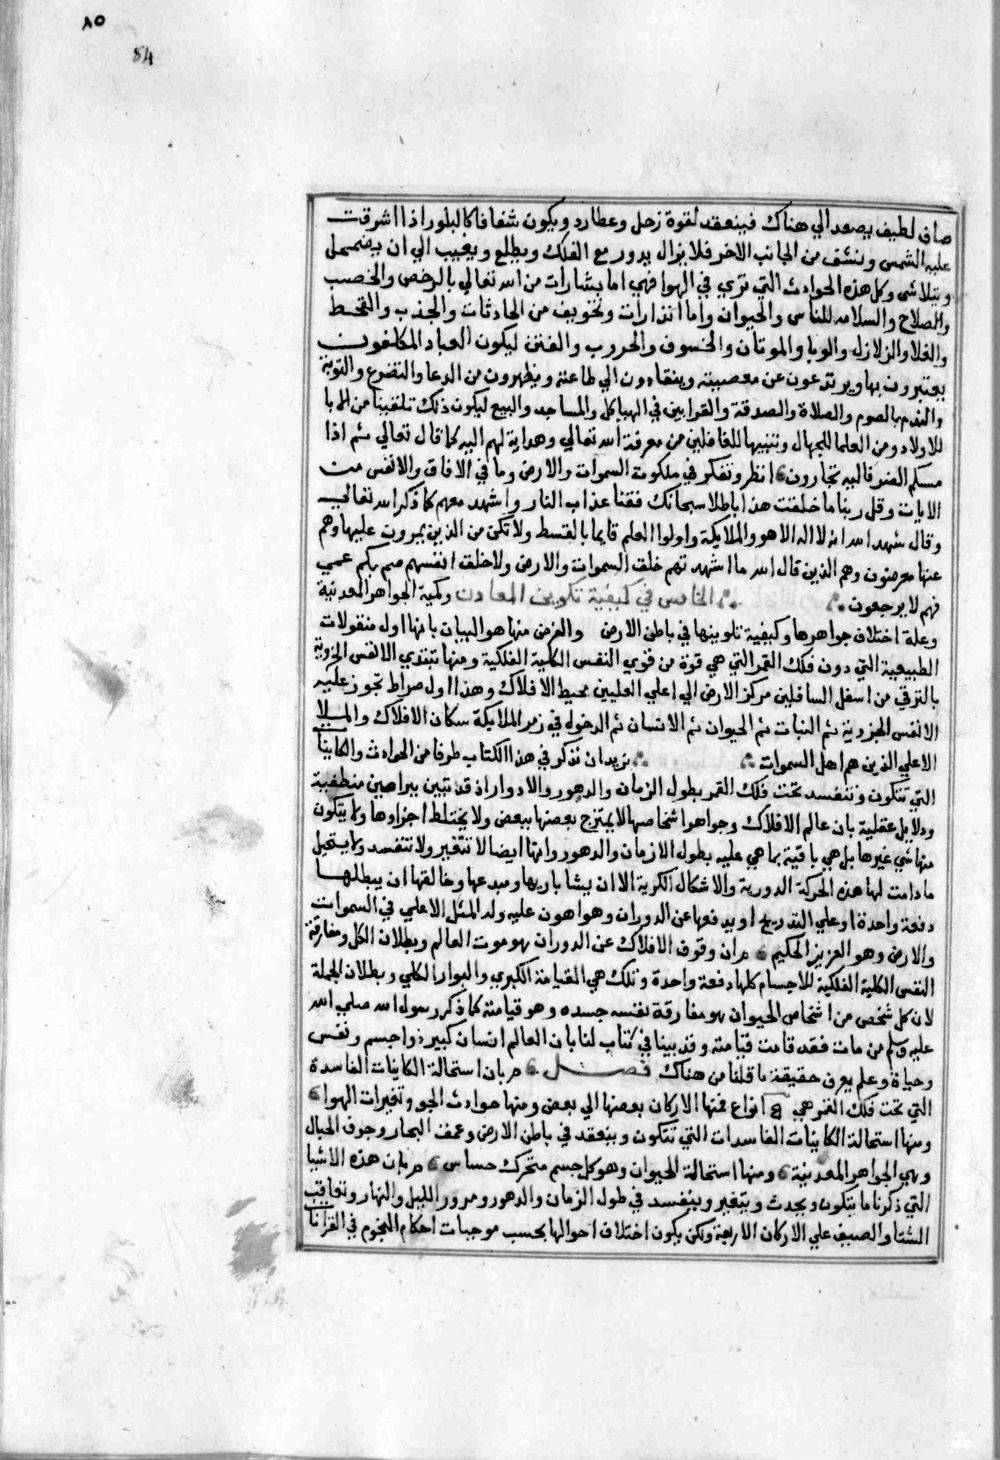 ٨٥
84
صافي لطيف يصعد الي هناك فينعقد لقوة زحل وعطارد ويكون شفافا كالبلور اذا اشرقت
عليه الشمس ونشف من الجانب الاخر فلا يزال يدور مع الفلك ويطلع ويغيب الي ان يضمحل
ويتلاشى وكل هذه الحوادث التي تري في الهوا فهي اما بشارات من الله تعالي بالرخص والخصب
والصلاح والسلامه للناس والحيوان واما انذارات وتخويف من الحادثات والجذب والقحط
والغلا والزلازل والوبا والموتان والخسوف والحروب والفتن ليكون العباد المكلفون
يعتبرون بها ويرتدعون عن معصيته وينقادون الي طاعته ويظهرون من الدعا والتضرع والتوبة
والندم بالصوم والصلاة والصدقة والقرابين في الهياكل والمساجد والبيع ليكون ذلك تلقينا من الابا
للاولاد ومن العلما للجهال وتنبيها للغافلين من معرفة الله تعالي وهداية لهم اليه كما قال تعالي ثم اذا
مسكم الضر فاليه تجارون انظر وتفكر في ملكوت السموات والارض وما في الافاق والانفس من
الايات وقل ربنا ما خلقت هذا باطلا سبحانك فقنا عذاب النار واشهد معهم كما ذكر الله تعالي
وقال شهد الله انه لا اله الا هو والملايكة واولوا العلم قايما بالقسط ولا تكن من الذين يمرون عليها وهم
عنها معرضون وهم الذين قال الله ما اشهدتهم خلق السموات والارض ولا خلق انفسهم صم بكم عمي
فهم لا يرجعون الخامس في كيفية تكوين المعادن وكمية الجواهر المعدنية
وعلة اختلاف جواهرها وكيفية تكوينها في باطن الارض والغرض منها هو البيان بانها اول منقولات
الطبيعية التي دون فلك القمر التي هي قوة من قوي النفس الكلية الفلكية ومنها تبتدي الانفس الجزوية
بالترقي من اسفل السافلين مركز الارض الي اعلي العليين محيط الافلاك وهذا اول صراط تجوز عليه
الانفس الجزوية ثم النبات ثم الحيوان ثم الانسان ثم الدخول في زمر الملايكة سكان الافلاك والملا
الاعلي الذين هم اهل السموات نريد ان نذكر في هذا الكتاب طرفا من الحوادث والكاينا
التي تتكون وتنفسد تحت فلك القمر بطول الزمان والدهور والادوار اذ قد تبين ببراهين منطقية
ودلايل عقلية بان عالم الافلاك وجواهر اشخاصها لا يمتزج بعضها ببعض ولا يختلط اجزاوها ولا يتكون
منها شي غيرها بل هي باقية بما هي عليه بطول الازمان والدهور وانها ايضا لا تتغير ولا تنفسد ولا يستحيل
ما دامت لها هذه الحركة الدورية والاشكال الكرية الا ان يشا باريها ومبدعها وخالقها ان يبطلها
دفعة واحدة او علي التدريج او يدفعها عن الدوران وهو اهون عليه وله المثل الاعلي في السموات
والارض وهو العزيز الحكيم وان وقوف الافلاك عن الدوران هو موت العالم وبطلان الكل ومفارقة
النفس الكلية الفلكية للاجسام كلها دفعة واحدة وتلك هي القيامة الكبري والبوار الكلي وبطلان الجملة
لان كل شخص من اشخاص الحيوان هو مفارقة نفسه جسده وهو قيامته كما ذكر رسول الله صلي الله
عليه وسلم من مات فقد قامت قيامته وقد بينا في كتاب لنا بان العالم انسان كبير ذو جسم ونفس
وحياة وعلم يعرف حقيقة ما قلنا من هناك فصل بان استحالة الكاينات الفاسدة
التي تحت فلك القمر هي انواع فمنها الاركان بعضها الي بعض ومنها حوادث الجو وتغيرات الهوا
ومنها استحالة الكاينات الفاسدات التي تتكون وينعقد في باطن الارض وعمق البحار وجوف الجبال
وهي الجواهر المعدنية ومنها استحالة الحيوان وهو كل جسم متحرك حساس بان هذه الاشيا
التي ذكرناها يتكون ويحدث ويتغير وينفسد في طول الزمان والدهور ومرور الليل والنهار وتعاقب
الشتا والصيف علي الاركان الاربعة ولكن يكون اختلاف احوالها بحسب موجبات احكام النجوم في القرانا